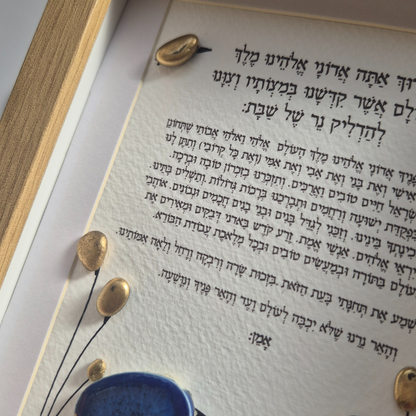 אַתָּה אֲדוֹנָי אֱלֹהֵינוּ מֶלֶךְ
אֲשֶׁר קִדְּשָׁנוּ בְּמִצְוֹתָיו וְצִוָּנוּ
לְהַדְלִיק נֵר שֶׁל שַׁבָּת:
אֲדוֹנָי אֱלֹהֵינוּ מֶלֶךְ הָעוֹלָם
אִישִׁי וְאֶת בָּנַי וְאֶת אָבִי וְאֶת אִמִּי (וְאֶת כָּל קְרוֹבַי) וְתִתֵּן לָנוּ
חַיִּים טוֹבִים וַאֲרֻכִּים. וְתִזְכְּרֵנוּ בְּזִכְרוֹן טוֹבָה וּבְרָכָה.
יְשׁוּעָה וְרַחֲמִים וּתְבָרְכֵנוּ בְּרָכוֹת גְּדוֹלוֹת וְתַשְׁלִים בָּתֵּינוּ.
בֵּינֵינוּ. וְזַכֵּנִי לְגַדֵּל בָּנִים וּבְנֵי בָנִים חֲכָמִים וּנְבוֹנִים. אוֹהֲבֵי
אֱלֹהִים. אַנְשֵׁי אֱמֶת. זֶרַע קֹדֶשׁ בַּאדֹנָי דְּבֵקִים וּמְאִירִים אֶת
בְּתוֹרָה וּבְמַעֲשִׂים טוֹבִים וּבְכָל מְלֶאכֶת עֲבוֹדַת הַבּוֹרֵא.
אֶת תְּחִנָּתִי בָּעֵת הַזֹּאת. בִּזְכוּת שָׂרָה וְרִבְקָה וְרָחֵל וְלֵאָה אִמּוֹתֵינוּ.
וְהָאֵר נֵרֵנוּ שֶׁלֹּא יִכְבֶּה לְעוֹלָם וָעֶד וְהָאֵר פָּנֶיךָ וְנִוָּשֵׁעָה.
אָמֵן: